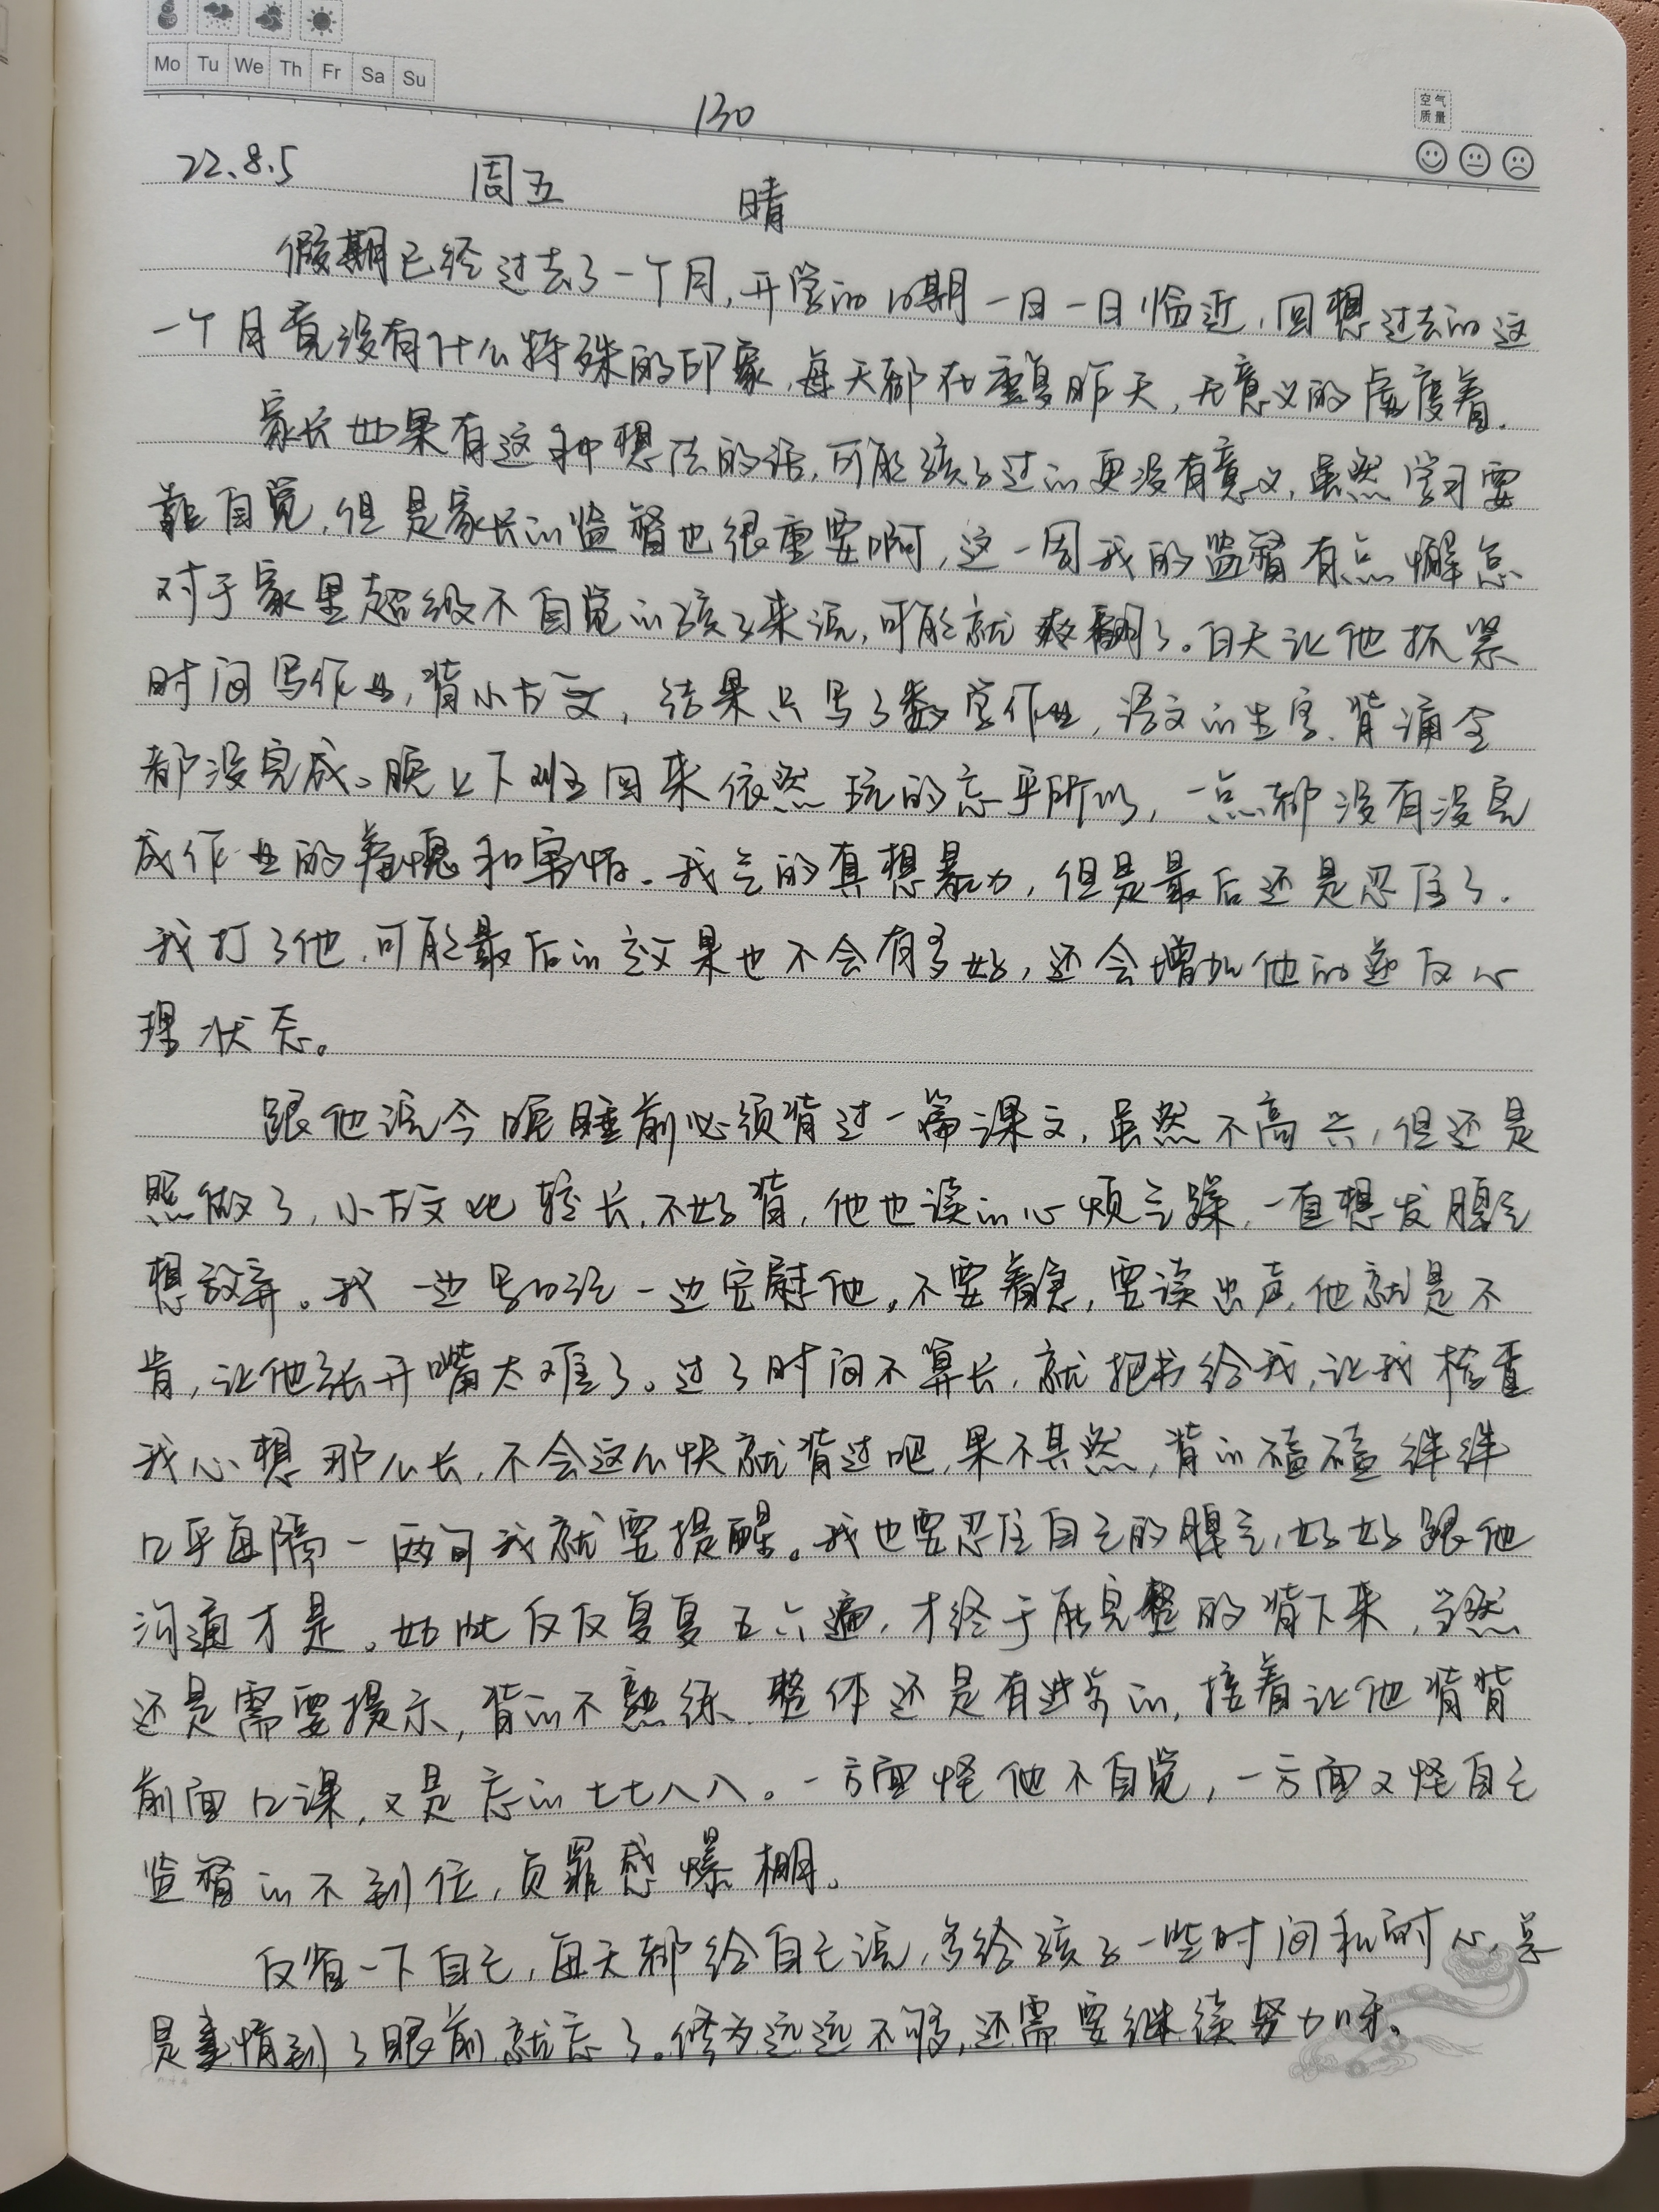 Mo Tu We Th Fr Sa Su
130
空气质量
22.8.5 周五 晴
假期已经过去了一个月,开学的日期一日一日临近,回想过去的这
一个月竟没有什么特殊的印象,每天都在重复昨天,无意义的虚度着.
家长如果有这种想法的话,可能孩子过的更没有意义,虽然学习要
靠自觉,但是家长的监督也很重要啊,这一周我的监督有点懈怠
对于家里超级不自觉的孩子来说,可能就爽翻了。白天让他抓紧
时间写作业,背小古文,结果只写了数学作业,语文的生字、背诵全
都没完成。晚上下班回来依然玩的忘乎所以,一点都没有没完
成作业的羞愧和害怕.我气的真想暴力,但是最后还是忍住了.
我打了他,可能最后的效果也不会有多好,还会增加他的逆反心
理状态。
跟他说今晚睡前必须背过一篇课文,虽然不高兴,但还是
照做了,小古文比较长,不好背,他也读的心烦气躁,一直想发脾气
想放弃。我一边写日记一边安慰他,不要着急,要读出声,他就是不
肯,让他张开嘴太难了。过了时间不算长,就把书给我,让我检查
我心想那么长,不会这么快就背过吧,果不其然,背的磕磕绊绊
几乎每隔一两句我就要提醒。我也要忍住自己的脾气,好好跟他
沟通才是。如此反反复复五六遍,才终于能完整的背下来,当然
还是需要提示,背的不熟练.整体还是有进步的,接着让他背背
前面几课,又是忘的七七八八。一方面怪他不自觉,一方面又怪自己
监督的不到位,负罪感爆棚。
反省一下自己,每天都给自己说,多给孩子一些时间和耐心,总
是事情到了眼前就忘了。修为远远不够,还需要继续努力呀、